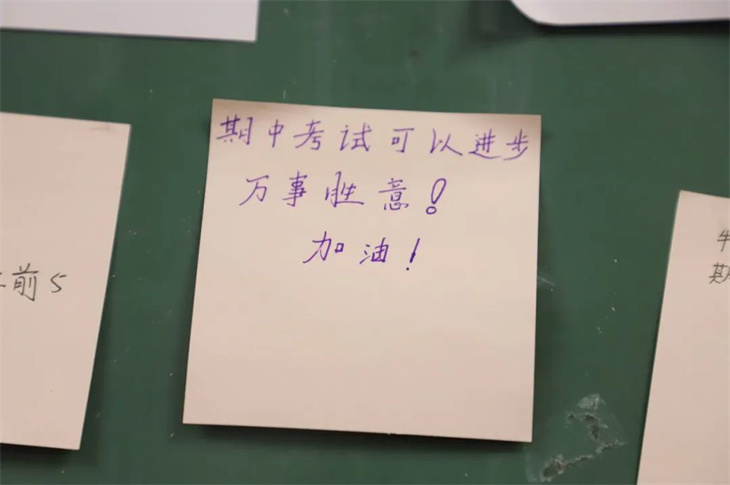 期中考试可以进步
万事胜意！
加油！
前5
期